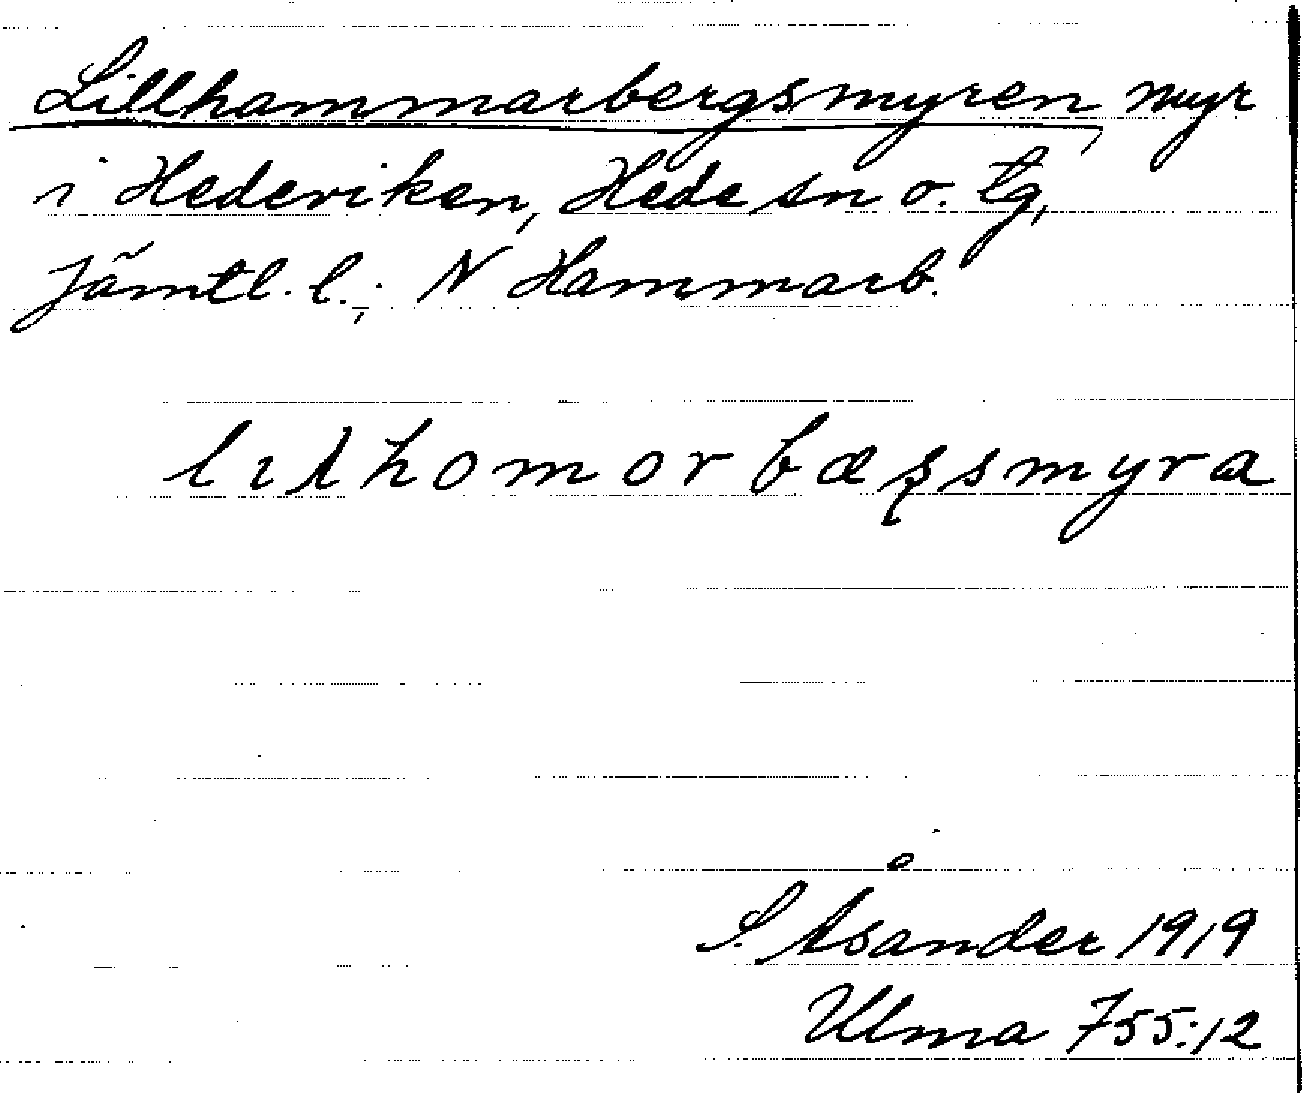 Lillhammarbergsmyren, myr
i Hedeviken, Hede sn o. tg,
Jämtl. l.; N Hammarb.
lılhomorbæşsmyra
S. Åsander 1919
Ulma 755:12